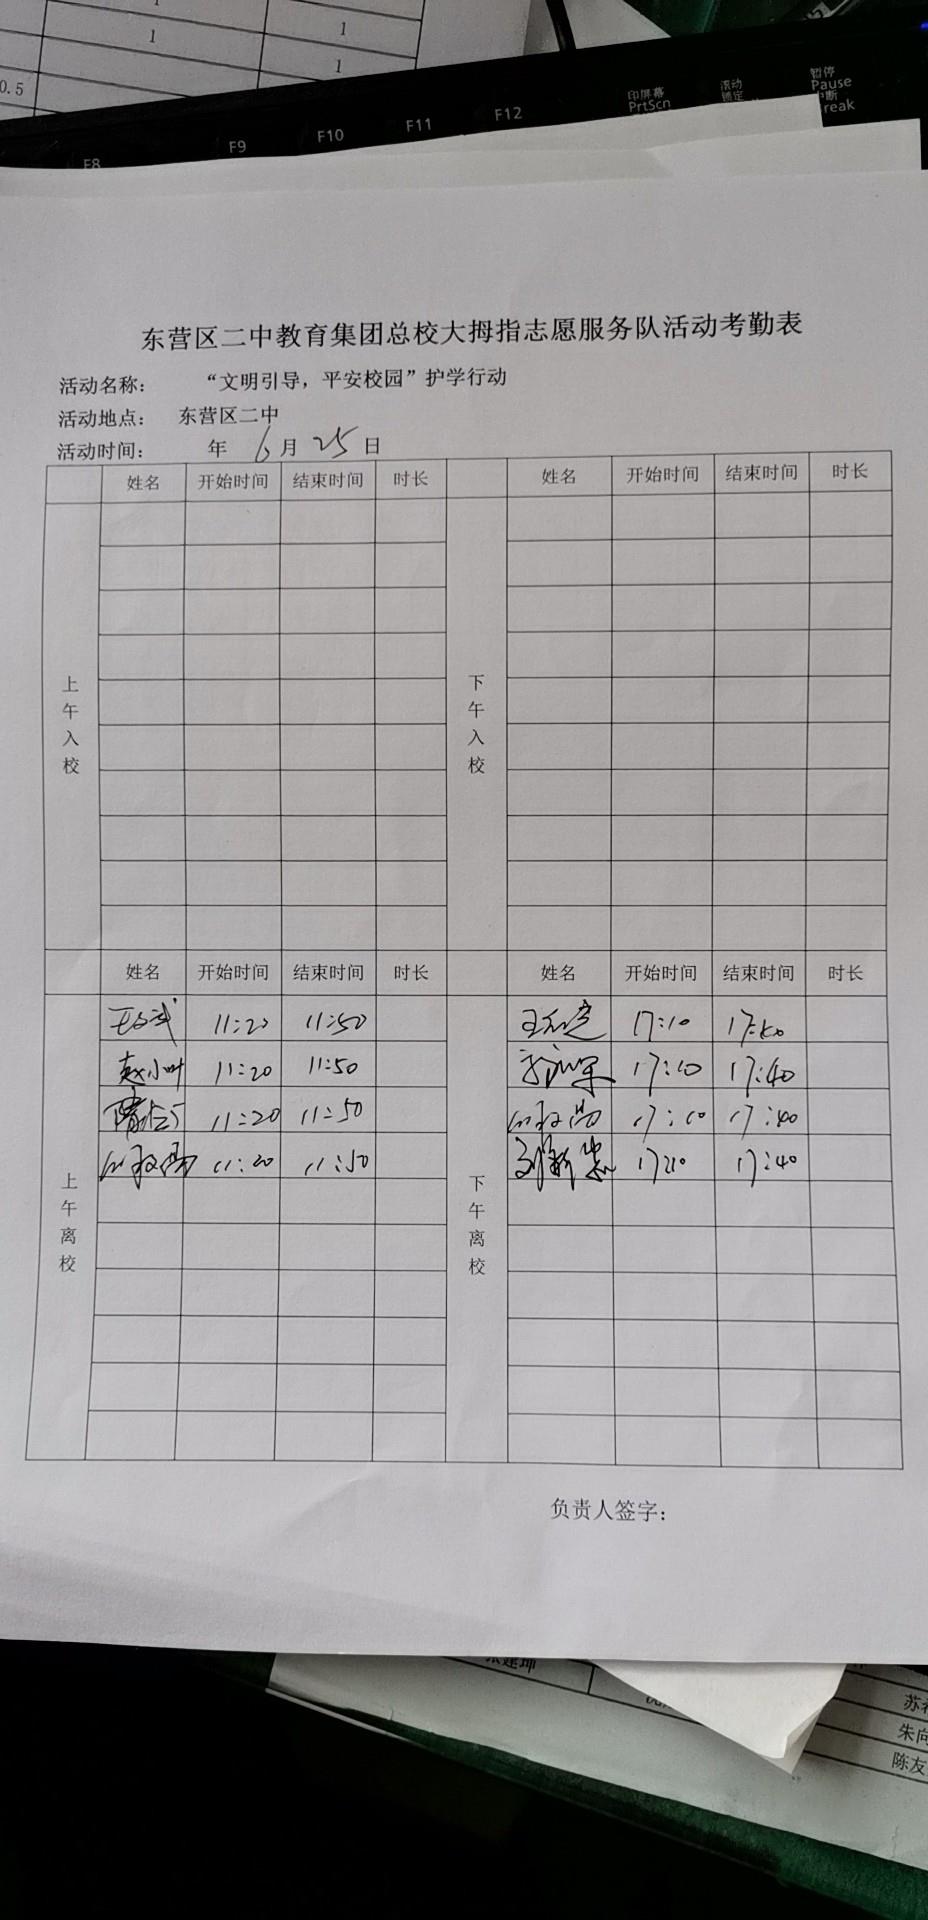 1
1
1
0.5
F8 F9 F10 F11 F12
印屏幕
PrtScn
滚动
锁定
暂停
Pause
中断
reak
东营区二中教育集团总校大拇指志愿服务队活动考勤表
活动名称： “文明引导，平安校园”护学行动
活动地点： 东营区二中
活动时间： 年 6 月 25 日
姓名 开始时间 结束时间 时长 姓名 开始时间 结束时间 时长
上午入校 下午入校
姓名 开始时间 结束时间 时长 姓名 开始时间 结束时间 时长
11:20 11:50 17:10 17:40
赵小叶 11:20 11:50 17:10 17:40
11:20 11:50 17:10 17:40
11:20 11:50 17:10 17:40
上午离校 下午离校
负责人签字：
张建坤
朱向
陈友